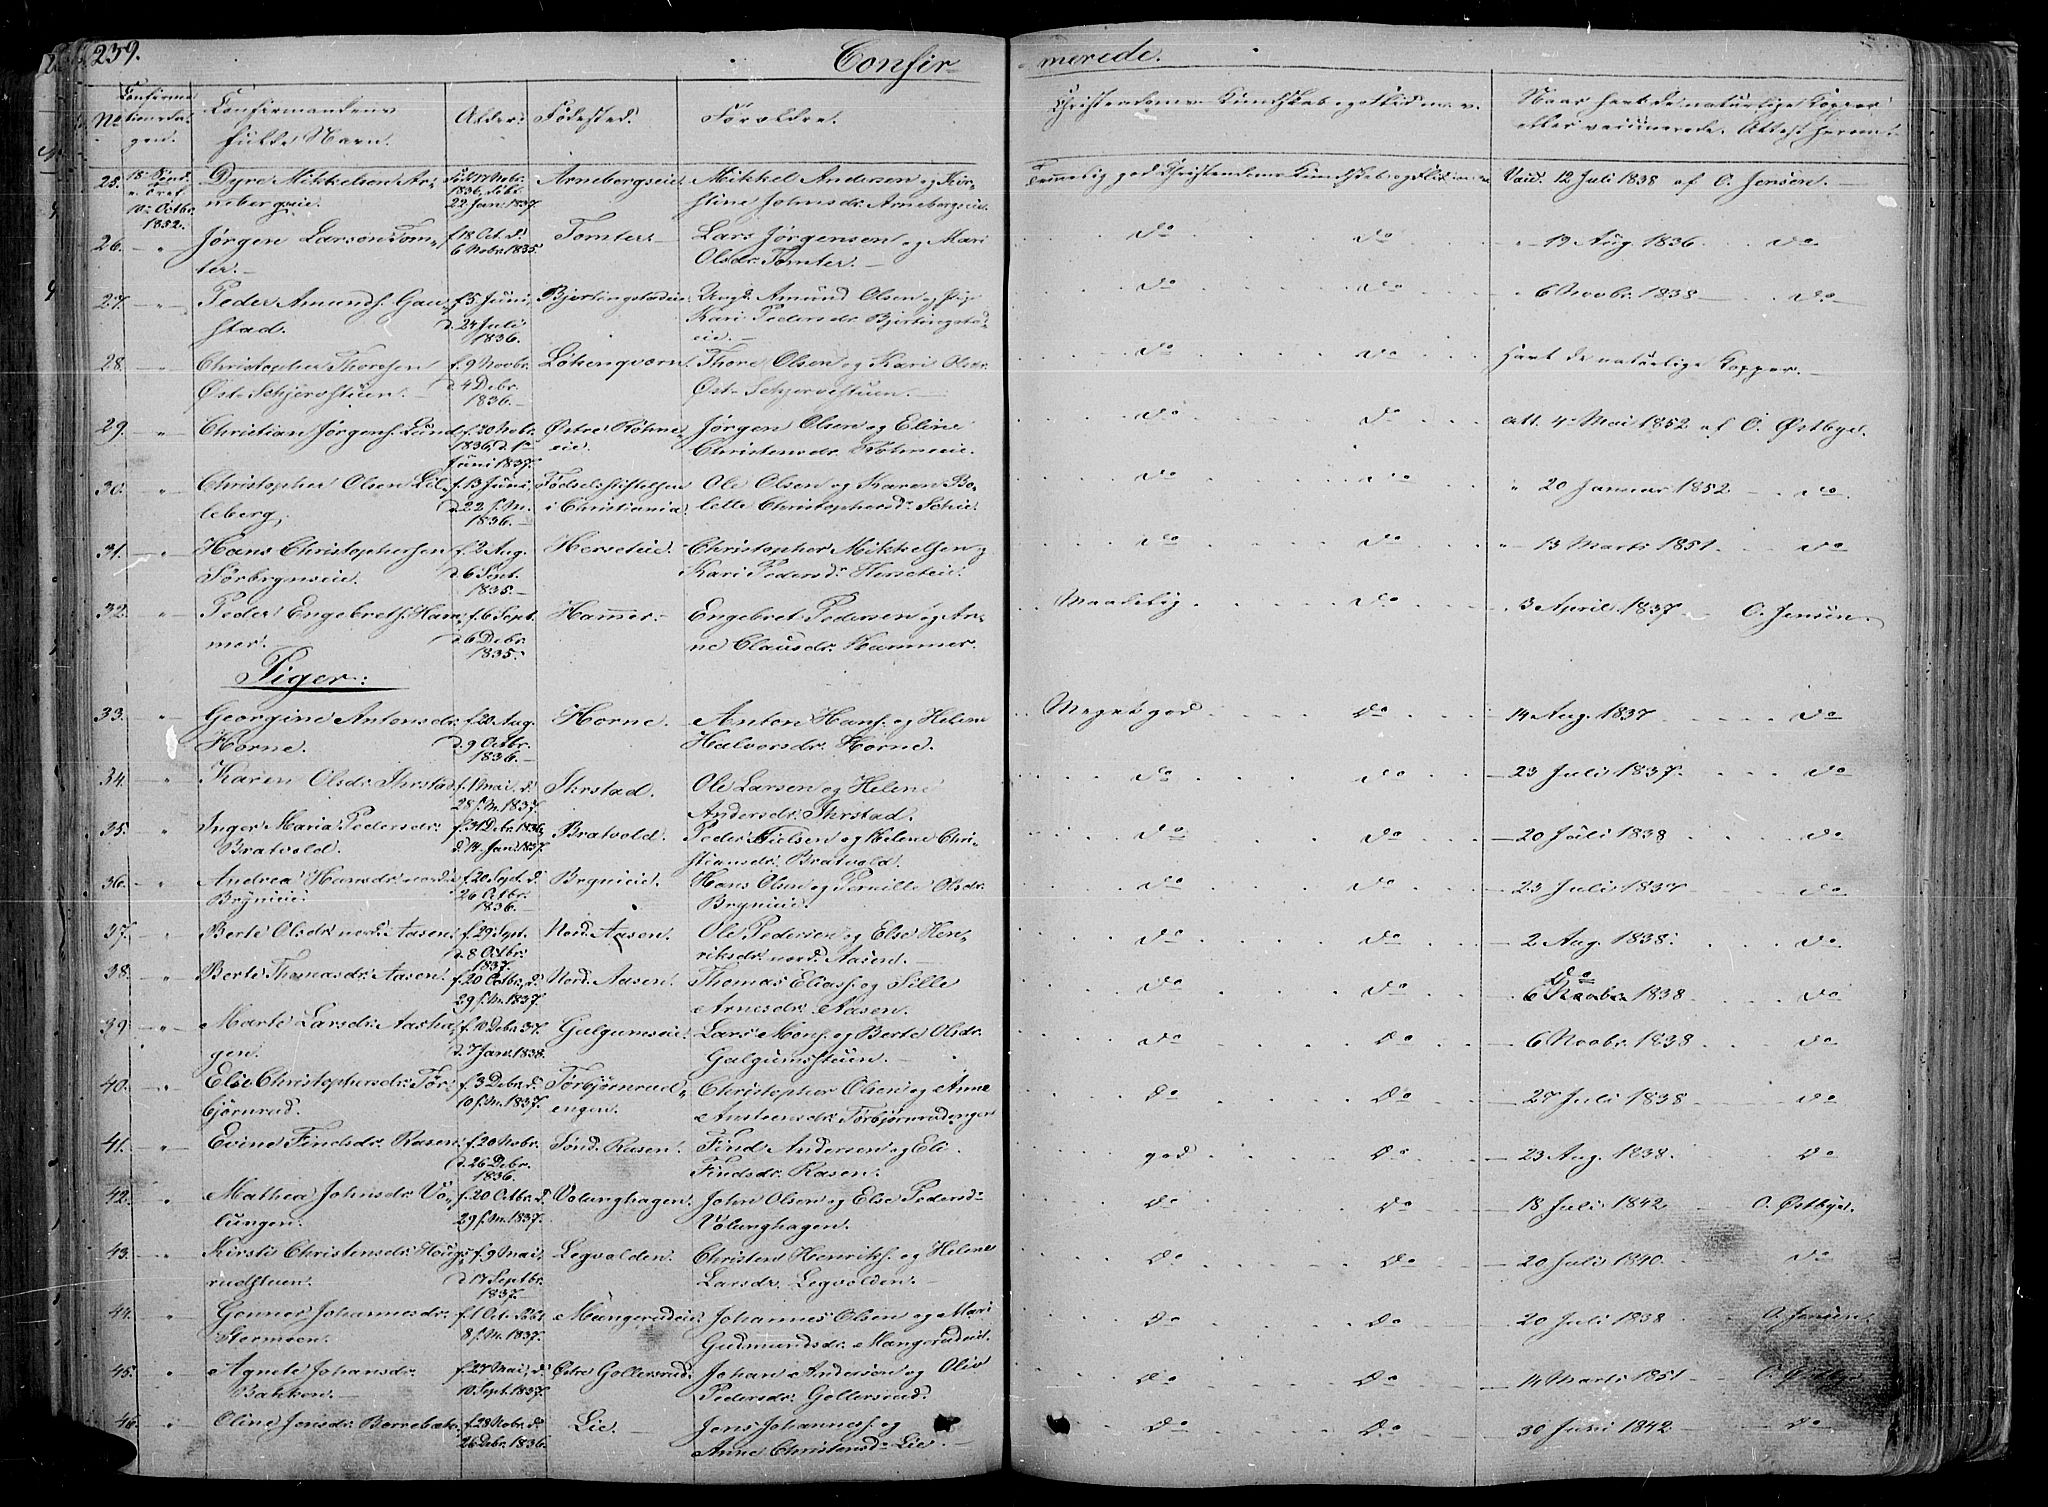 239. Confir- merede.
No Confirmationsdagen. Confirmandens fulde Navn. Alder. Fødested. Forældre. Christendoms-Kundskab og Naar havt de naturlige Kopper
eller vaccinerede. Attest herom.
25. 18 Sønd. e. Tref. 10 Octbr. 1852. Dyre Mikkelsen Ar- 17 Novbr. 1836, 22 Jan. 1837. Arnebergseie. Mikkel Andersen og Kir- Temmelig god Christendoms Kundskab og Flid Vacc. 12 Juli 1838 af O. Jensen.
nebergseie. stine Johnsdr. Arnebergseie.
26. " Jørgen Larsen Tom- f. 18 Oct. d. 6 Novbr. 1835. Tomter. Lars Jørgensen og Mari do do " 19 Aug. 1836 do
ter. Olsdr. Tomter.
27. " Peder Amunds. Gau- f. 5 Juni, d. 24 Juli 1836. Bjertingstadeie Ungk. Amund Olsen og Pige do do " 6 Novbr. 1838 do
stad. Kari Pedersdr. Bjertingstad-
eie.
28. " Christopher Thoresen f. 9 Novbr. d. 4 Debr. 1836. Løkenqværn. Thore Olsen og Kari Olsdr. do do Havt de naturlige Kopper.
Øst. Schjervstuen. Øst. Schjervstuen.
29. " Christian Jørgens. Lund f. 20 Novbr. 1836, d. 1 Juni 1837. Østre Kohne- Jørgen Olsen og Eline do do att. 4 Mai 1852 af O. Østbye.
eie. Christensdr. Kohneeie.
30. " Christopher Olsen Lil- f. 13 Juni, d. 22 s. M. 1836. Fødselsstiftelsen Ole Olsen og Karen Bo- do do " 20 Januar 1852 do
leberg. i Christiania. lette Christophersdr. Schie.
31. " Hans Christophersen f. 2 Aug. d. 6 Sept. 1835. Herseteie. Christopher Mikkelsen og do do " 13 Marts 1851. do
Sørbryneie. Kari Pedersdr. Herseteie.
32. " Peder Engebrets. Ham- f. 6 Sept. d. 6 Debr. 1835. Hammer. Engebret Pedersen og An- Maadelig do " 3 April 1837 O. Jensen.
mer. ne Clausdr. Hammer.
Piger:
33. " Georgine Antonsdr. f. 20 Aug. d. 9 Octbr. 1836. Horne. Anton Hans. og Helene Meget god do 14 Aug. 1837 do
Horne. Halvorsdr. Horne.
34. " Karen Olsdr. Ihrstad f. 1 Mai, d. 28 s. M. 1837. Ihrstad. Ole Larsen og Helene do do 23 Juli 1837. do
Andersdr. Ihrstad.
35. " Inger Maria Pedersdr. f. 31 Debr. 1836, d. 14 Jan. 1837. Bratvold. Peder Nielsen og Helene Chri- do do 20 Juli 1838 do
Bratvold. stiansdr. Bratvold.
36. " Andrea Hansdr. nordre f. 20 Sept. d. 26 Octbr. 1836. Bryneie. Hans Olsen og Pernille Olsdr. do do 23 Juli 1837 do
Bryneie. Bryneie.
37. " Berte Olsdr. nord. Aasen. f. 29 Sept. d. 8 Octbr. 1837. Nord. Aasen. Ole Pedersen og Else Hen- do do 2 Aug. 1838. do
riksdr. nord. Aasen.
38. " Berte Thomasdr. Aasen. f. 20 Octbr, d. 29 s. M. 1837. Nord. Aasen. Thomas Elias. og Sille do do 6 Novbr 1838 do
Arnesdr. Aasen.
39. " Marte Larsdr. Aasha- f. 10 Debr. 37. d. 7 Jan. 1838. Galgumseie. Lars Mons. og Berte Olsdr. do do 6 Novbr. 1838 do
gen. Galgumsstuen.
40. " Else Christophersdr. Tor- f. 3 Debr. d. 10 s. M. 1837. Torbjørnrud- Christopher Olsen og Anne do do 27 Juli 1838 do
bjørnrud. engen. Austensdr. Torbjørnrudengen
41. " Evine Findsdr. Rasen. f. 20 Novbr. d. 26 Debr. 1836. Sønd. Rasen. Find Andersen og Eli god do 23 Aug. 1838. do
Findsdr. Rasen.
42. " Mathea Johnsdr. Vo- f. 20 Octbr. d. 29 s. M. 1837. Volunghagen. John Olsen og Else Pedersdr do do 18 Juli 1842 O. Østbye.
lungen. Volunghagen.
43. " Kirsti Christensdr. Houg- f. 9 Mai, d. 17 Septbr. 1837. Legvolden. Christen Henriks. og Helene do do 20 Juli 1840. do
rudstuen. Larsdr. Legvolden.
44. " Gonner Johannesdr. f. 1 Oct. 8 s. M. 1837. Mangerudeie. Johannes Olsen og Mari do do 20 Juli 1838 O. Jensen.
Stormoen. Gudmundsdr. Mangerudeie.
45. " Agnete Johansdr. f. 27 Mai, d. 10 Sept. 1837. Østre Gollersrud. Johan Andersen og Oliv do do 14 Marts 1851 O. Østbye
Bakken. Pedersdr. Gollersrud.
46. " Oline Jensdr. Borrebæk. f. 28 Novbr. d. 26 Debr. 1836. Lie. Jens Johannes. og do do 30 Juni 1842 do
Anne Christensdr. Lie.